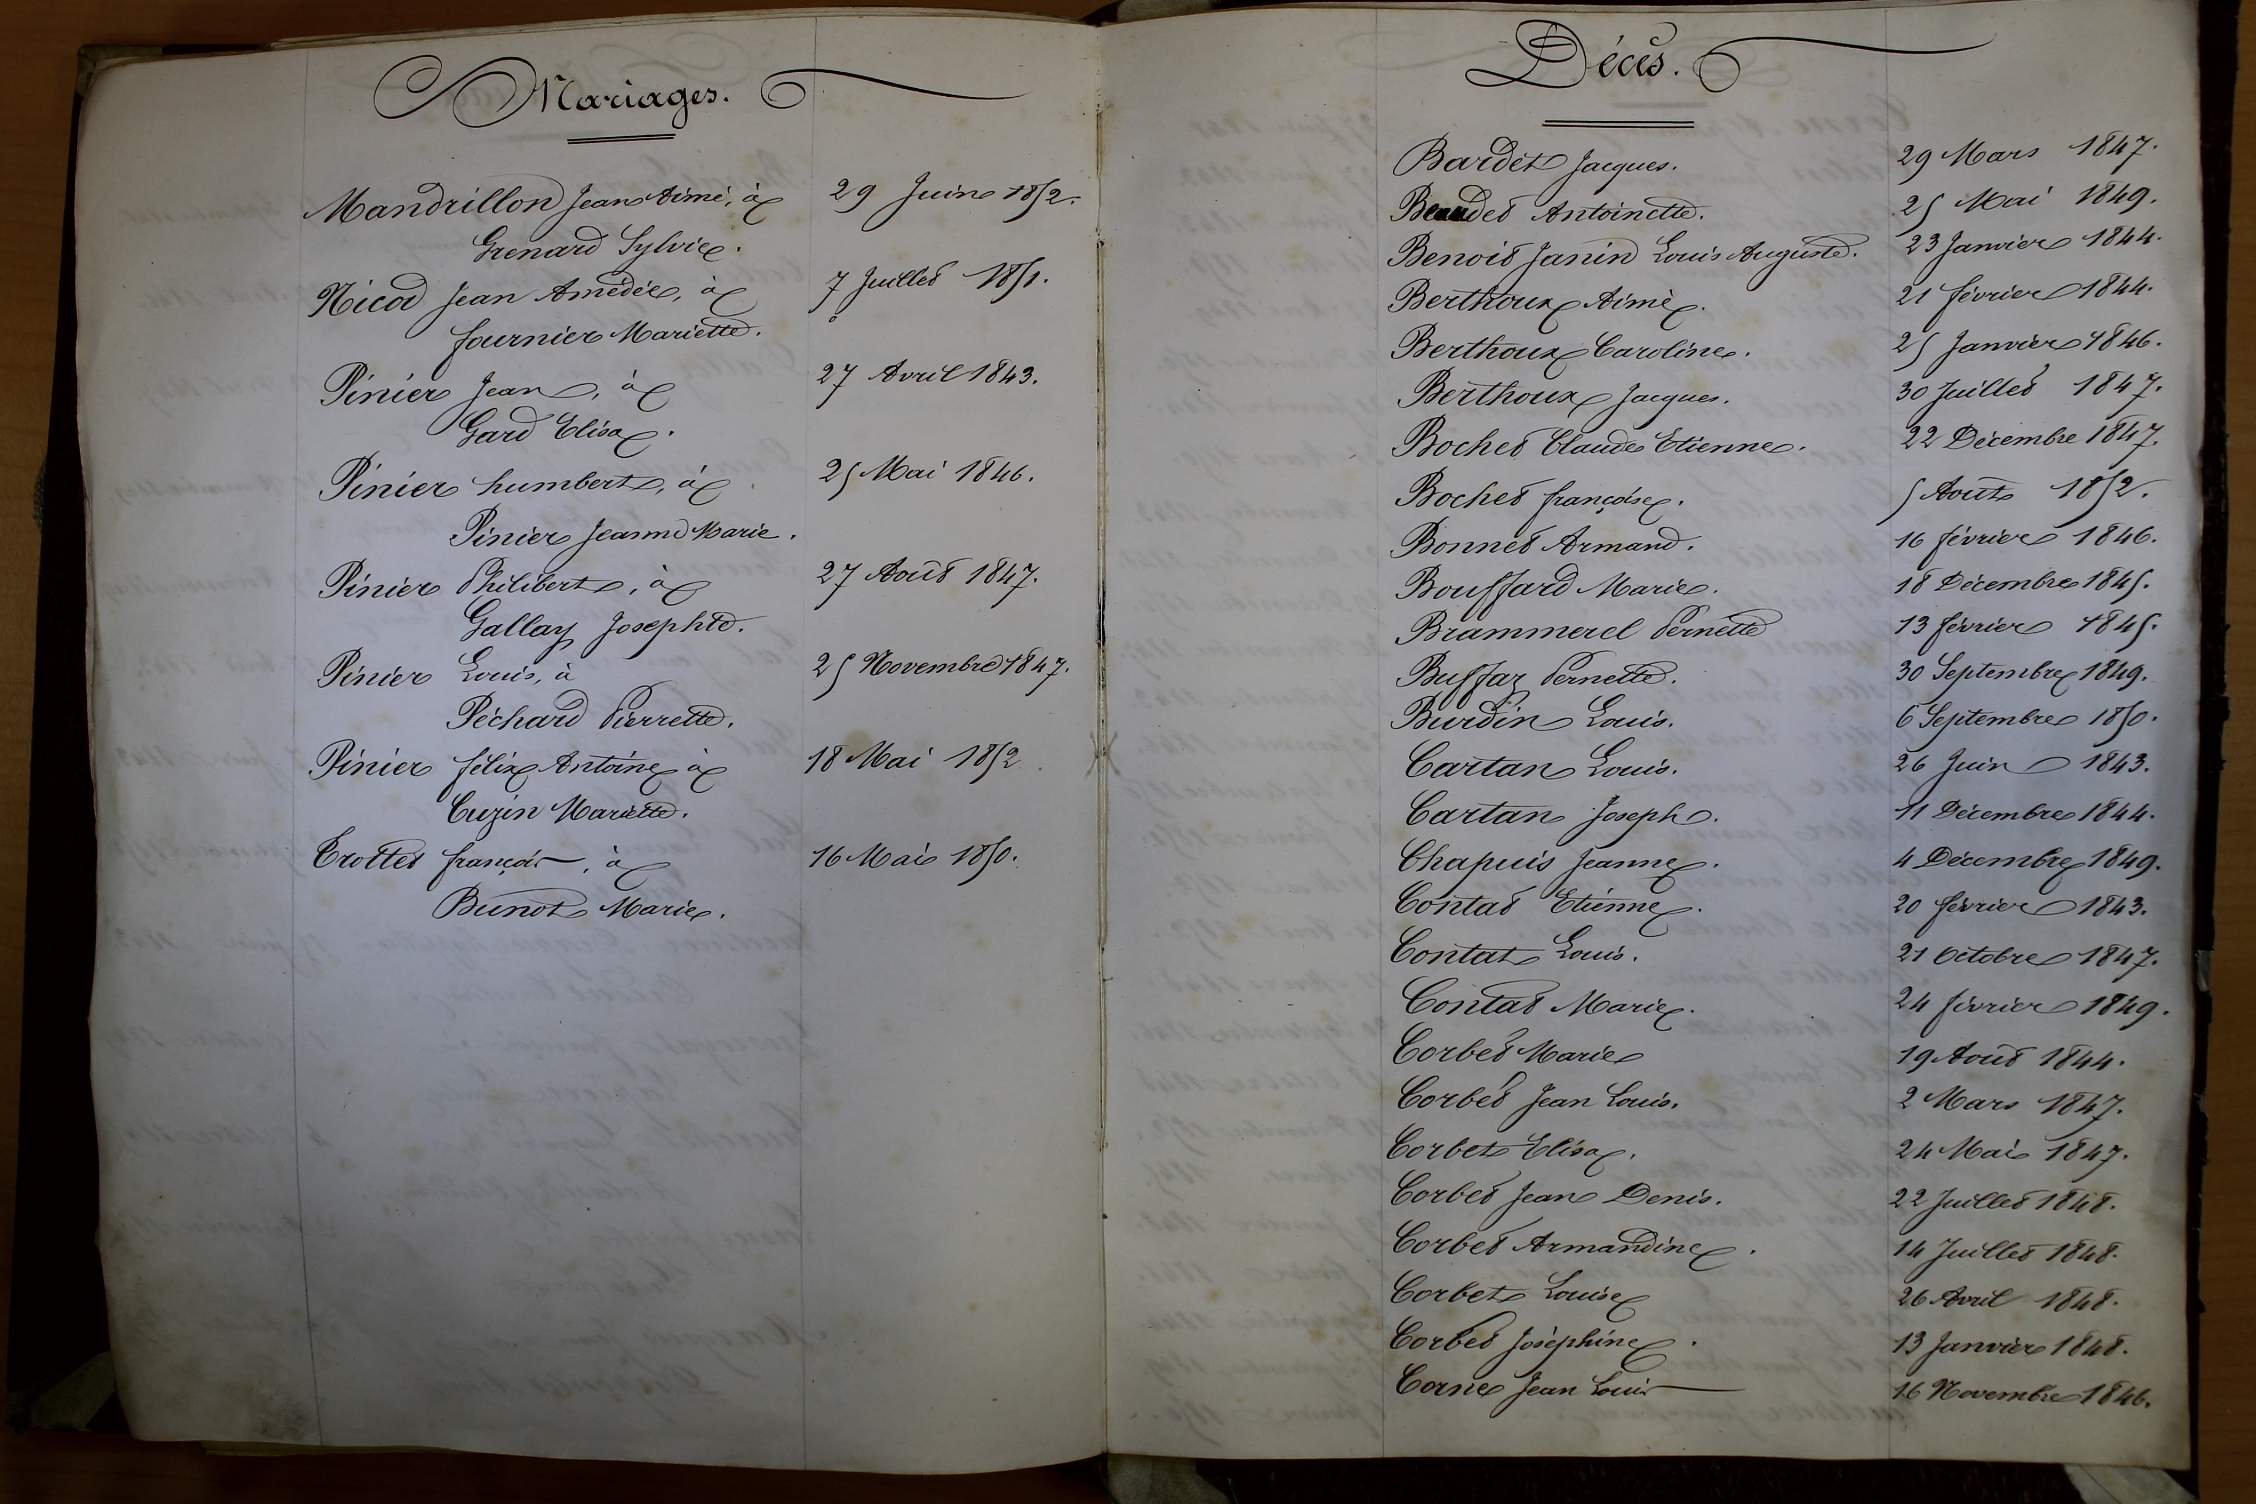 Mariages.
Mandrillon Jean Aimé, à 29 Juin 1852.
Grenard Sylvie.
Nicod Jean Amédée, à 7 Juillet 1851.
fournier Mariette.
Pinier Jean, à 27 Avril 1843.
Gard Elisa.
Pinier humbert, à 25 Mai 1846.
Pinier Jeanne Marie.
Pinier Philibert, à 27 Août 1847.
Gallay Josephte.
Pinier Louis, à 25 Novembre 1847.
Péchard Pierrette.
Pinier félix Antoine à 18 Mai 1852
Cuzin Mariette.
Trottet françois, à 16 Mai 1850.
Bunot Marie.
Décès.
Bardet Jacques. 29 Mars 1847.
Beaudet Antoinette. 25 Mai 1849.
Benoit Janin Louis Auguste. 23 Janvier 1844.
Berthoux Aimé. 21 février 1844.
Berthoux Caroline. 25 Janvier 1846.
Berthoux Jacques. 30 Juillet 1847.
Bochet Claude Etienne. 22 Décembre 1847.
Bochet françoise. 5 Août 1852.
Bonnet Armand. 16 février 1846.
Bouffard Marie. 18 Décembre 1845.
Brammerel Pernette 13 février 1845.
Buffaz Pernette. 30 Septembre 1849.
Burdin Louis. 6 Septembre 1850.
Cartan Louis. 26 Juin 1843.
Cartan Joseph. 11 Décembre 1844.
Chapuis Jeanne. 4 Décembre 1849.
Contat Etienne. 20 février 1843.
Contat Louis. 21 Octobre 1847.
Contat Marie. 24 février 1849.
Corbet Marie 19 Août 1844.
Corbet Jean Louis. 2 Mars 1847.
Corbet Elisa. 24 Mai 1847.
Corbet Jean Denis. 22 Juillet 1848.
Corbet Armandine. 14 Juillet 1848.
Corbet Louise 26 Avril 1848.
Corbet Joséphine. 13 Janvier 1848.
Corne Jean Louis 16 Novembre 1846.